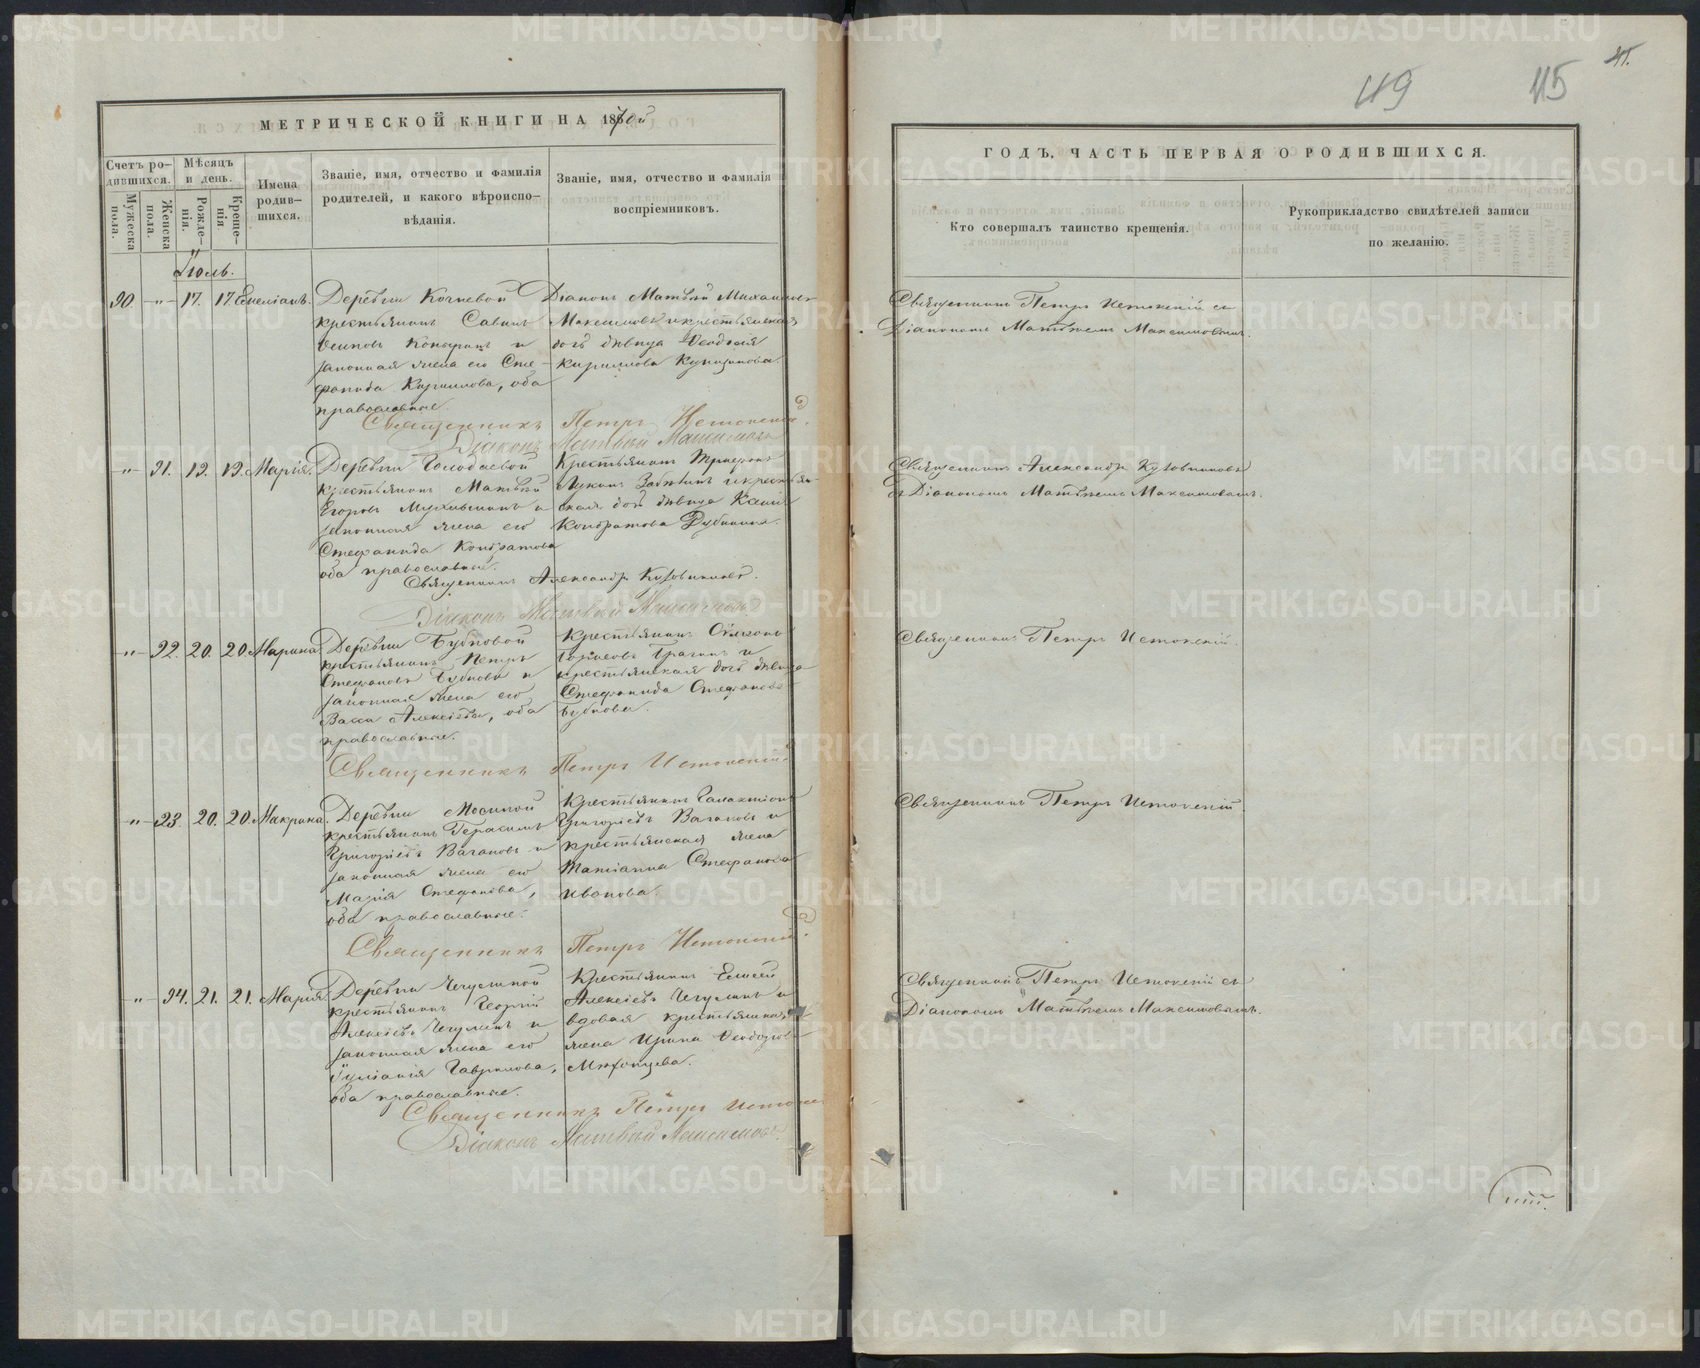 МЕТРИЧЕСКОЙ КНИГИ НА 1870й
Счетъ ро-
дившихся.
Мѣсяцъ
и день.
Мужеска
пола.
Женска
пола.
Рожде-
нія.
Креще-
нія
Имена
родив-
шихся.
Званіе, имя, отчество и фамилія
родителей, и какого вѣроиспо-
вѣданія.
Званіе, имя, отчество и фамилія
воспріемниковъ.
Іюль.
90. -„- 17. 17. Емеліанъ.
Деревни Кочневой
крестьянинъ Савинъ
законная жена его Сте-
фанида Кирилова, оба
православные.
Діаконъ Матвѣй Михаиловъ
Максимовъ и крестьянская
дочь дѣвица Ѳеодосія
Кирилова
Священникъ Петръ Истокскій.
Діаконъ Матвѣй Максимовъ
-„- 91. 19. 19. Марія.
Деревни Голодаевой
крестьянинъ Матвѣй
Егоровъ и
законная жена его
Стефанида Кондратова
оба православные.
Крестьянинъ Трифонъ
и крестьян-
ская дочь дѣвица
Кондратова Дубинина.
Священникъ Александръ Кузовниковъ.
Діаконъ Матвѣй Максимовъ
-„- 92. 20. 20. Марина.
Деревни Бубновой
крестьянинъ Петръ
Стефановъ Бубновъ и
законная жена его
Васса Алексѣева, оба
православные.
Крестьянинъ
Брагинъ и
крестьянская дочь дѣвица
Стефанида Стефанова
Бубнова.
Священникъ Петръ Истокскій
-„- 93. 20. 20. Макрина.
Деревни Мосиной
крестьянинъ Герасимъ
Григорьевъ Вагановъ и
законная жена его
Марія Стефанова,
оба православные.
Крестьянинъ Галактіонъ
Григорьевъ Вагановъ и
крестьянская жена
Татіанна Стефанова
Иванова.
Священникъ Петръ Истокскій.
-„- 94. 21. 21. Марія
Деревни Чечулиной
крестьянинъ Георгій
Алексѣевъ Чечулинъ и
законная жена его
Іуліанія Гаврилова,
оба православные.
Крестьянинъ Елисей
Алексѣевъ Чечулинъ и
вдовая крестьянская
жена Ирина Ѳеодорова
Священникъ Петръ
Діаконъ Матвѣй Максимовъ.
119 115
ГОДЪ, ЧАСТЬ ПЕРВАЯ О РОДИВШИХСЯ.
Кто совершалъ таинство крещенія.
Рукоприкладство свидѣтелей записи
по желанію.
Священникъ Петръ Истокскій съ
Діакономъ Матвѣемъ Максимовымъ.
Священникъ Александръ Кузовниковъ
съ Діакономъ Матвѣемъ Максимовымъ.
Священникъ Петръ Истокскій.
Священникъ Петръ Истокскій.
Священникъ Петръ Истокскій съ
Діакономъ Матвѣемъ Максимовымъ.
METRIKI.GASO-URAL.RU